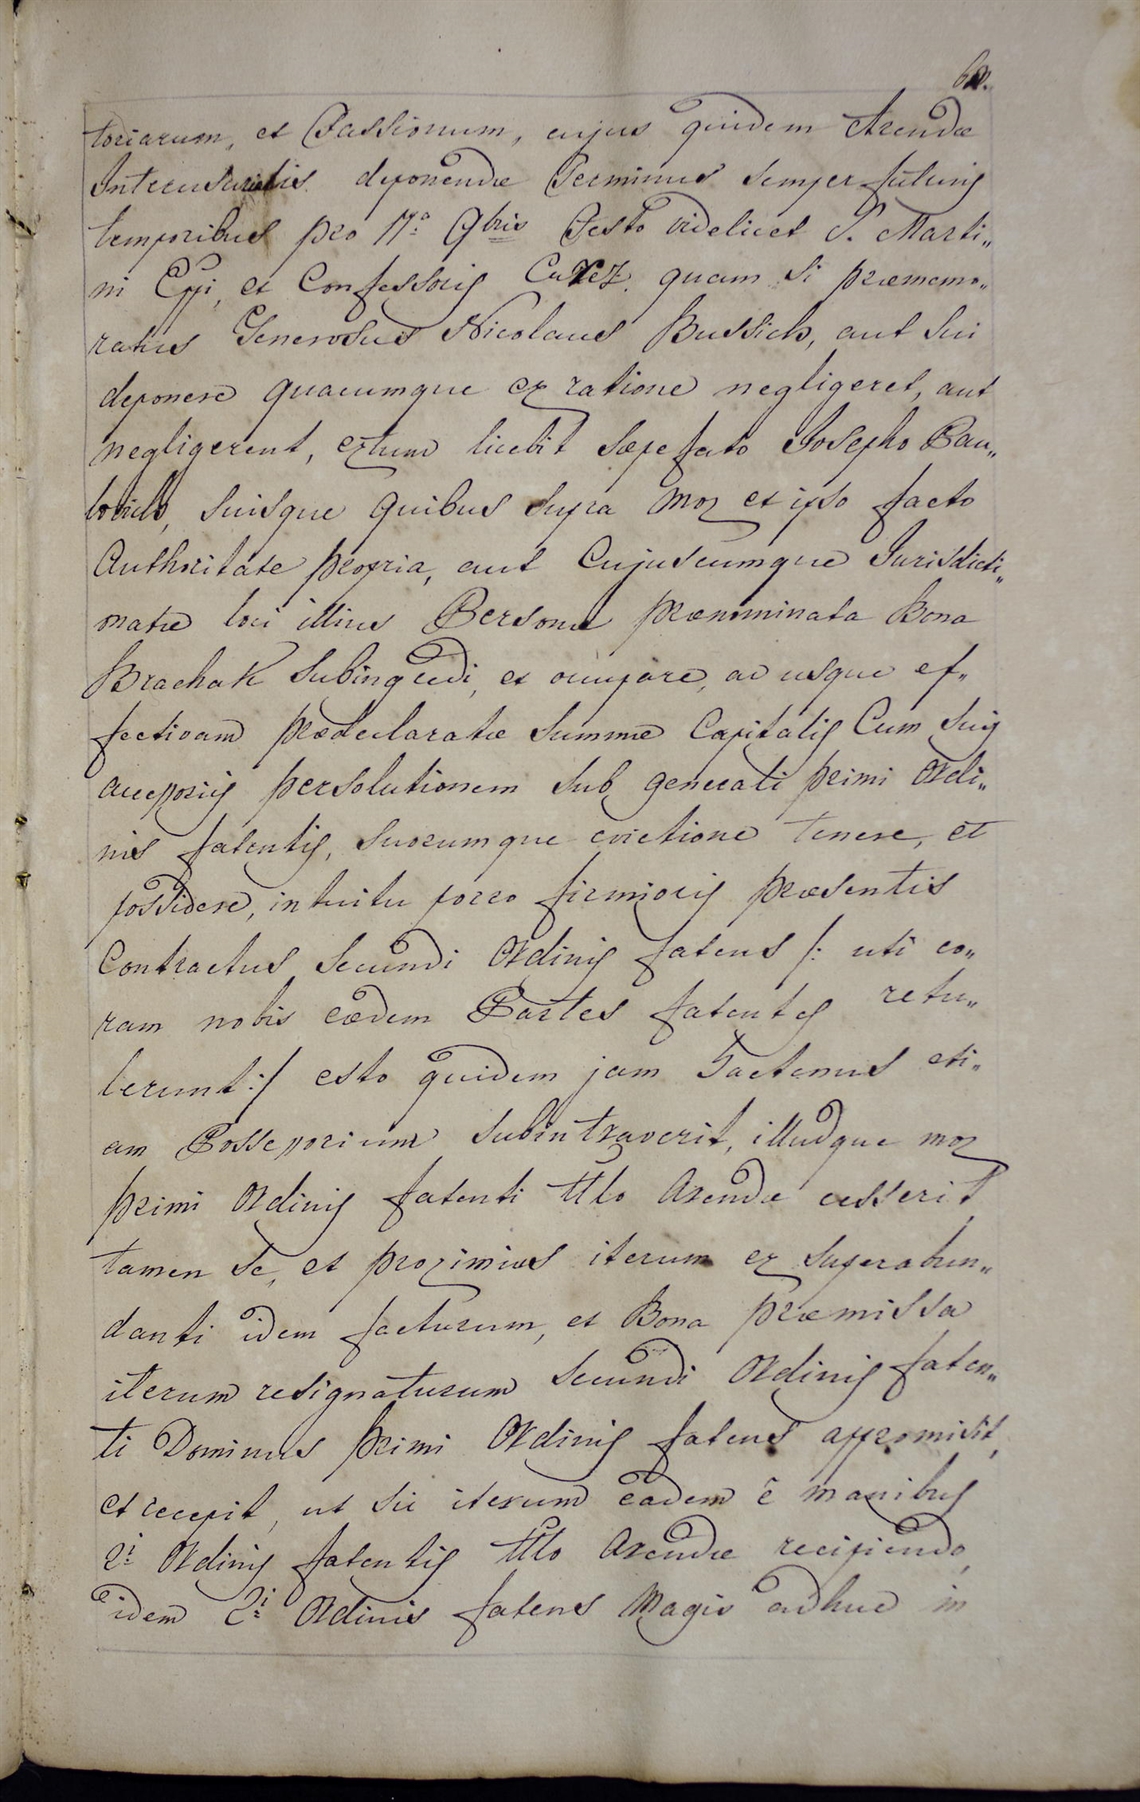 toriarum, et Passionum, cujus quidem Arendæ
Interusurialis deponendæ Terminus semper futuris
temporibus pro 11ª 9bris Festo videlicet S. Marti„
ni Eppi, et Confessoris quam si præmemo„
ratus Generosus Nicolaus Bussich, aut sui
deponere quacumque ex ratione negligeret, aut
negligerent, extum licebit sæpefato Josepho Pau„
lovich, suisque quibus supra mox et ipso facto
Authoritate propria, aut Cujuscumque Jurisdicti„
onatæ loci illius Personæ prænominata Bona
Brachak subingredi, et occupare, ac usque ef„
fectivam prædeclaratæ Summæ Capitalis Cum suis
accessoriis persolutionem sub generali primi Ordi„
nis fatentis, suorumque evictione tenere, et
possidere, intuitu porro firmioris præsentis
Contractus Secundi Ordinis fatens /: uti co„
ram nobis eædem Partes fatentes retu„
lerunt :/ esto quidem jam hactenus eti„
am Possessorium subintraverit, illudque mox
primi Ordinis fatenti Ttlo Arendæ cesserit
tamen se, et proximius iterum ex superabun„
danti idem facturum, et Bona præmissa
iterum resignaturum Secundi Ordinis faten„
ti Dominus primi Ordinis fatens appromisit,
et recepit, ut sic iterum eadem è manibus
2i Ordinis fatentis Ttlo Arendæ recipiendo,
idem 2i Ordinis fatens Magis adhuc in